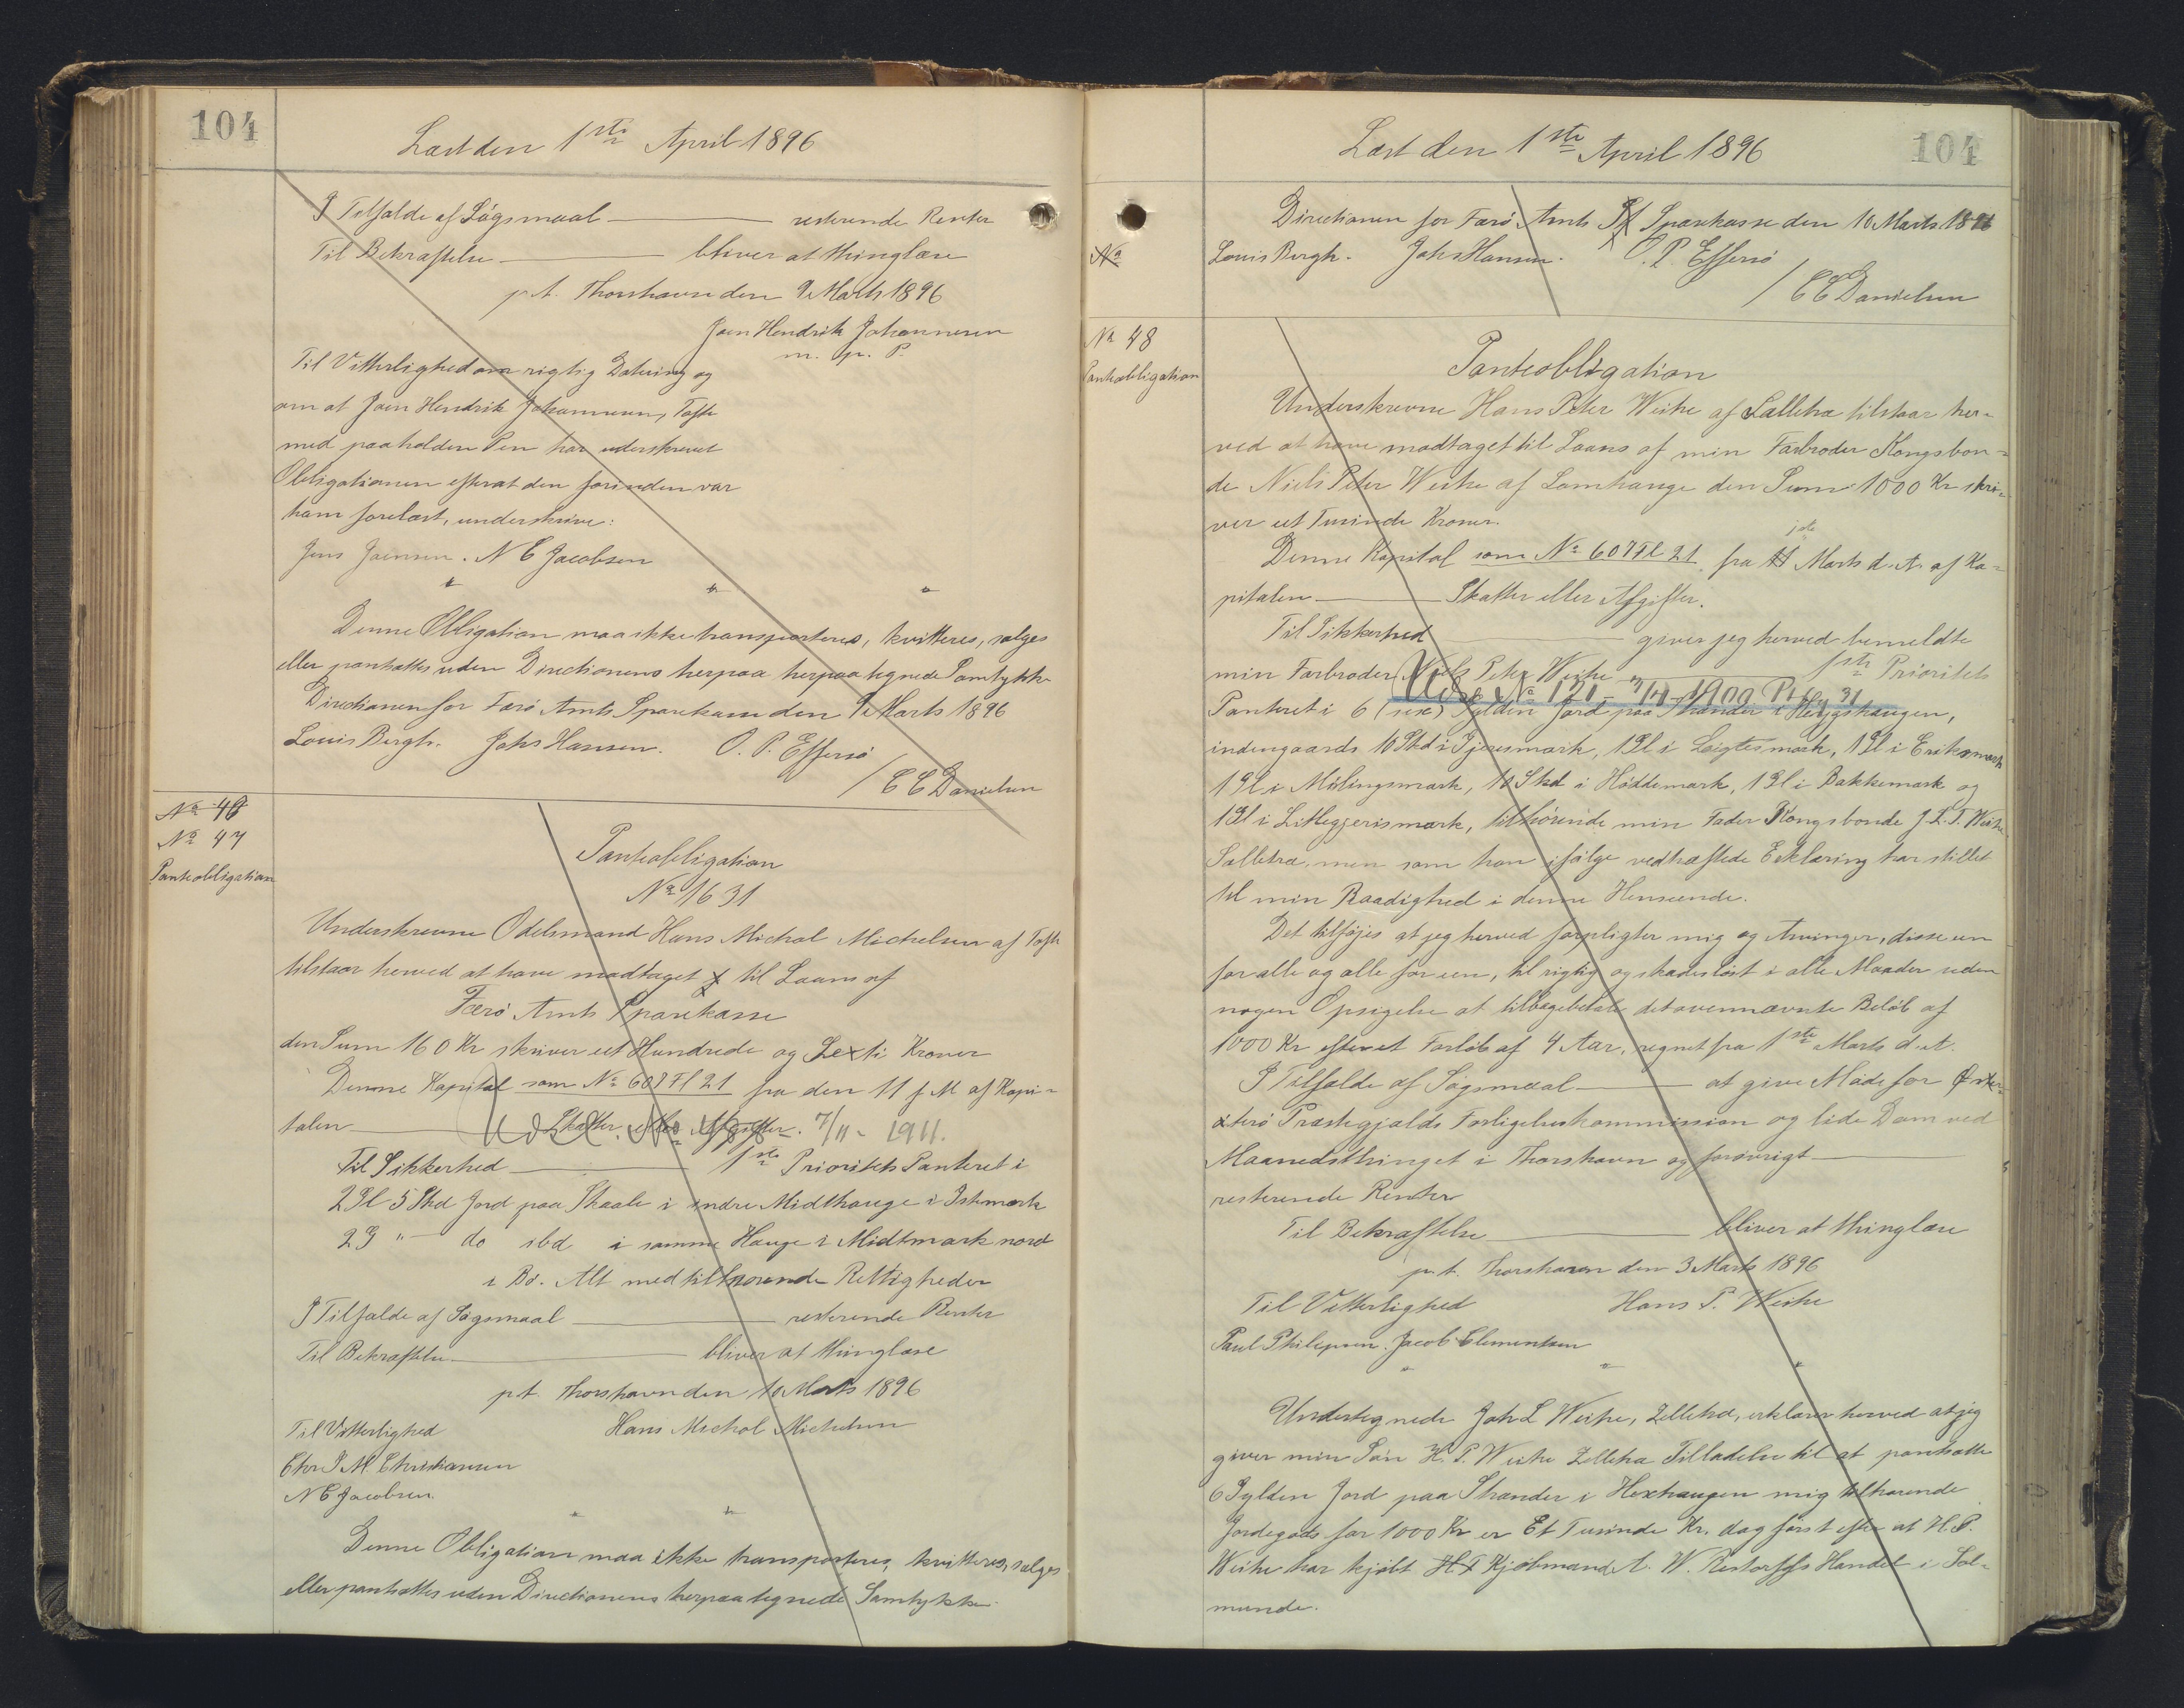 104
Læst den 1ste April 1896
I Tilfælde af Lögsmaal ——— resterende Renter
Til Bekræftelse ——— bliver at thinglæse
p.t. Thorshavn den 9 Marts 1896
Joen Hendrik Johannesen
m. p. P.
Til Vitterlighed om rigtig Datering og
om at Joen Hendrik Johannesen, Tofte
med paaholden Pen har underskrevet
Obligationen efterat den forinden var
ham forelæst, underskrive:
Jens Joensen. N E Jacobsen
Denne Obligation maa ikke transporteres, kvitteres, sælges
eller pantsættes uden Directionens herpaa herpaa tegnede Samtykke
Directionen for Færö Amts Sparekasse den 9 Marts 1896
Louis Bergh. Johs Hansen. O. P. Effersö
/ C C Danielsen
No 48
No 47
Panteobligation
Panteobligation
No 1631
Underskrevne Odelsmand Hans Michal Michelsen af Tofte
tilstaar herved at have modtaget til Laans af
Færö Amts Sparekasse
den Sum 160 Kr skriver eet Hundrede og Sexti Kroner
Denne Kapital som No 607 Fl 21 fra den 11 f M af Kapi-
talen ——— Skatter eller Afgifter.
Udsl. No 7/11 - 1911.
Til Sikkerhed ——— 1ste Prioritets Panteret i
2 Gl 5 Skd Jord paa Skaale i indre Midthauge i Istmark
2 G " — do ibd i samme Hauge i Midtmark nord
i Bö. Alt med tilhörende Rettigheder
I Tilfælde af Sögsmaal ——— resterende Renter
Til Bekræftelse ——— bliver at thinglæse
p.t. Thorshavn den 10 Marts 1896
Til Vitterlighed Hans Michal Michelsen
Chr. J M. Christiansen
N E Jacobsen.
Denne Obligation maa ikke transporteres, kvitteres, sælges
eller pantsættes uden Directionens herpaa tegnede Samtykke.
104
Læst den 1ste April 1896
Directionen for Færö Amts Sparekasse den 10 Marts 1896
No
Louis Bergh. Johs Hansen. O. P. Effersö
/ C C Danielsen
No 48
Panteobligation
Panteobligation
Underskrevne Hans Peter Weihe af Selletræ tilstaar her-
ved at have modtaget til Laans af min Farbroder Kongsbon-
de Niels Peter Weihe af Lamhauge den Sum 1000 Kr skri-
ver eet Tusinde Kroner.
Denne Kapital som No 607 Fl 21 fra 1ste Marts d. A. af Ka-
pitalen ——— Skatter eller Afgifter.
Til Sikkerhed ——— giver jeg herved bemeldte
min Farbroder Niels Peter Weihe ——— 1ste Prioritets
Udsl No 121 - 1900
Panteret i 6 (sex) Gylden Jord paa Strænder i Heygshaugen,
indengaards 10 Skd i Gjerismark, 1 Gl i Leigtesmark, 1 Gl i Eriksmark
1 Gl i Mölingsmark, 10 Skd i Höddemark, 1 Gl i Bakkemark og
1 Gl i Litlegjerismark, tilhörende min Fader Kongsbonde J. L. T. Weihe
Selletræ, men som han ifölge vedhæftede Erklæring har stillet
til min Raadighed i denne Henseende.
Det tilföjes at jeg herved forpligter mig og Arvinger, disse een
for alle og alle for een, til rigtig og skadeslöst i alle Maader uden
nogen Opsigelse at tilbagebetale det ovennævnte Belöb af
1000 Kr efter et Forlöb af 4 Aar, regnet fra 1ste Marts d. A.
I Tilfælde af Sögsmaal ——— at give Möde for Öster-
ö Præstegjælds Forligelseskommission og lide Dom ved
Maanedsthinget i Thorshavn og forövrigt ———
resterende Renter
Til Bekræftelse ——— bliver at thinglæse
p. t. Thorshavn den 3 Marts 1896
Til Vitterlighed Hans P. Weihe
Paul Philipsen. Jacob Clementsen
Undertegnede Joh L Weihe, Zelletræ, erklærer herved at jeg
giver min Sön H. P. Weihe Zelletræ Tilladelse til at pantsætte
6 Gylden Jord paa Strænder i Hexhaugen mig tilhørende
Jordegods for 1000 Kr er Et Tusinde Kr. dog först efter at H. P.
Weihe har kjöbt Kjöbmand A. W. Restorffs Handel i Sol-
munde.